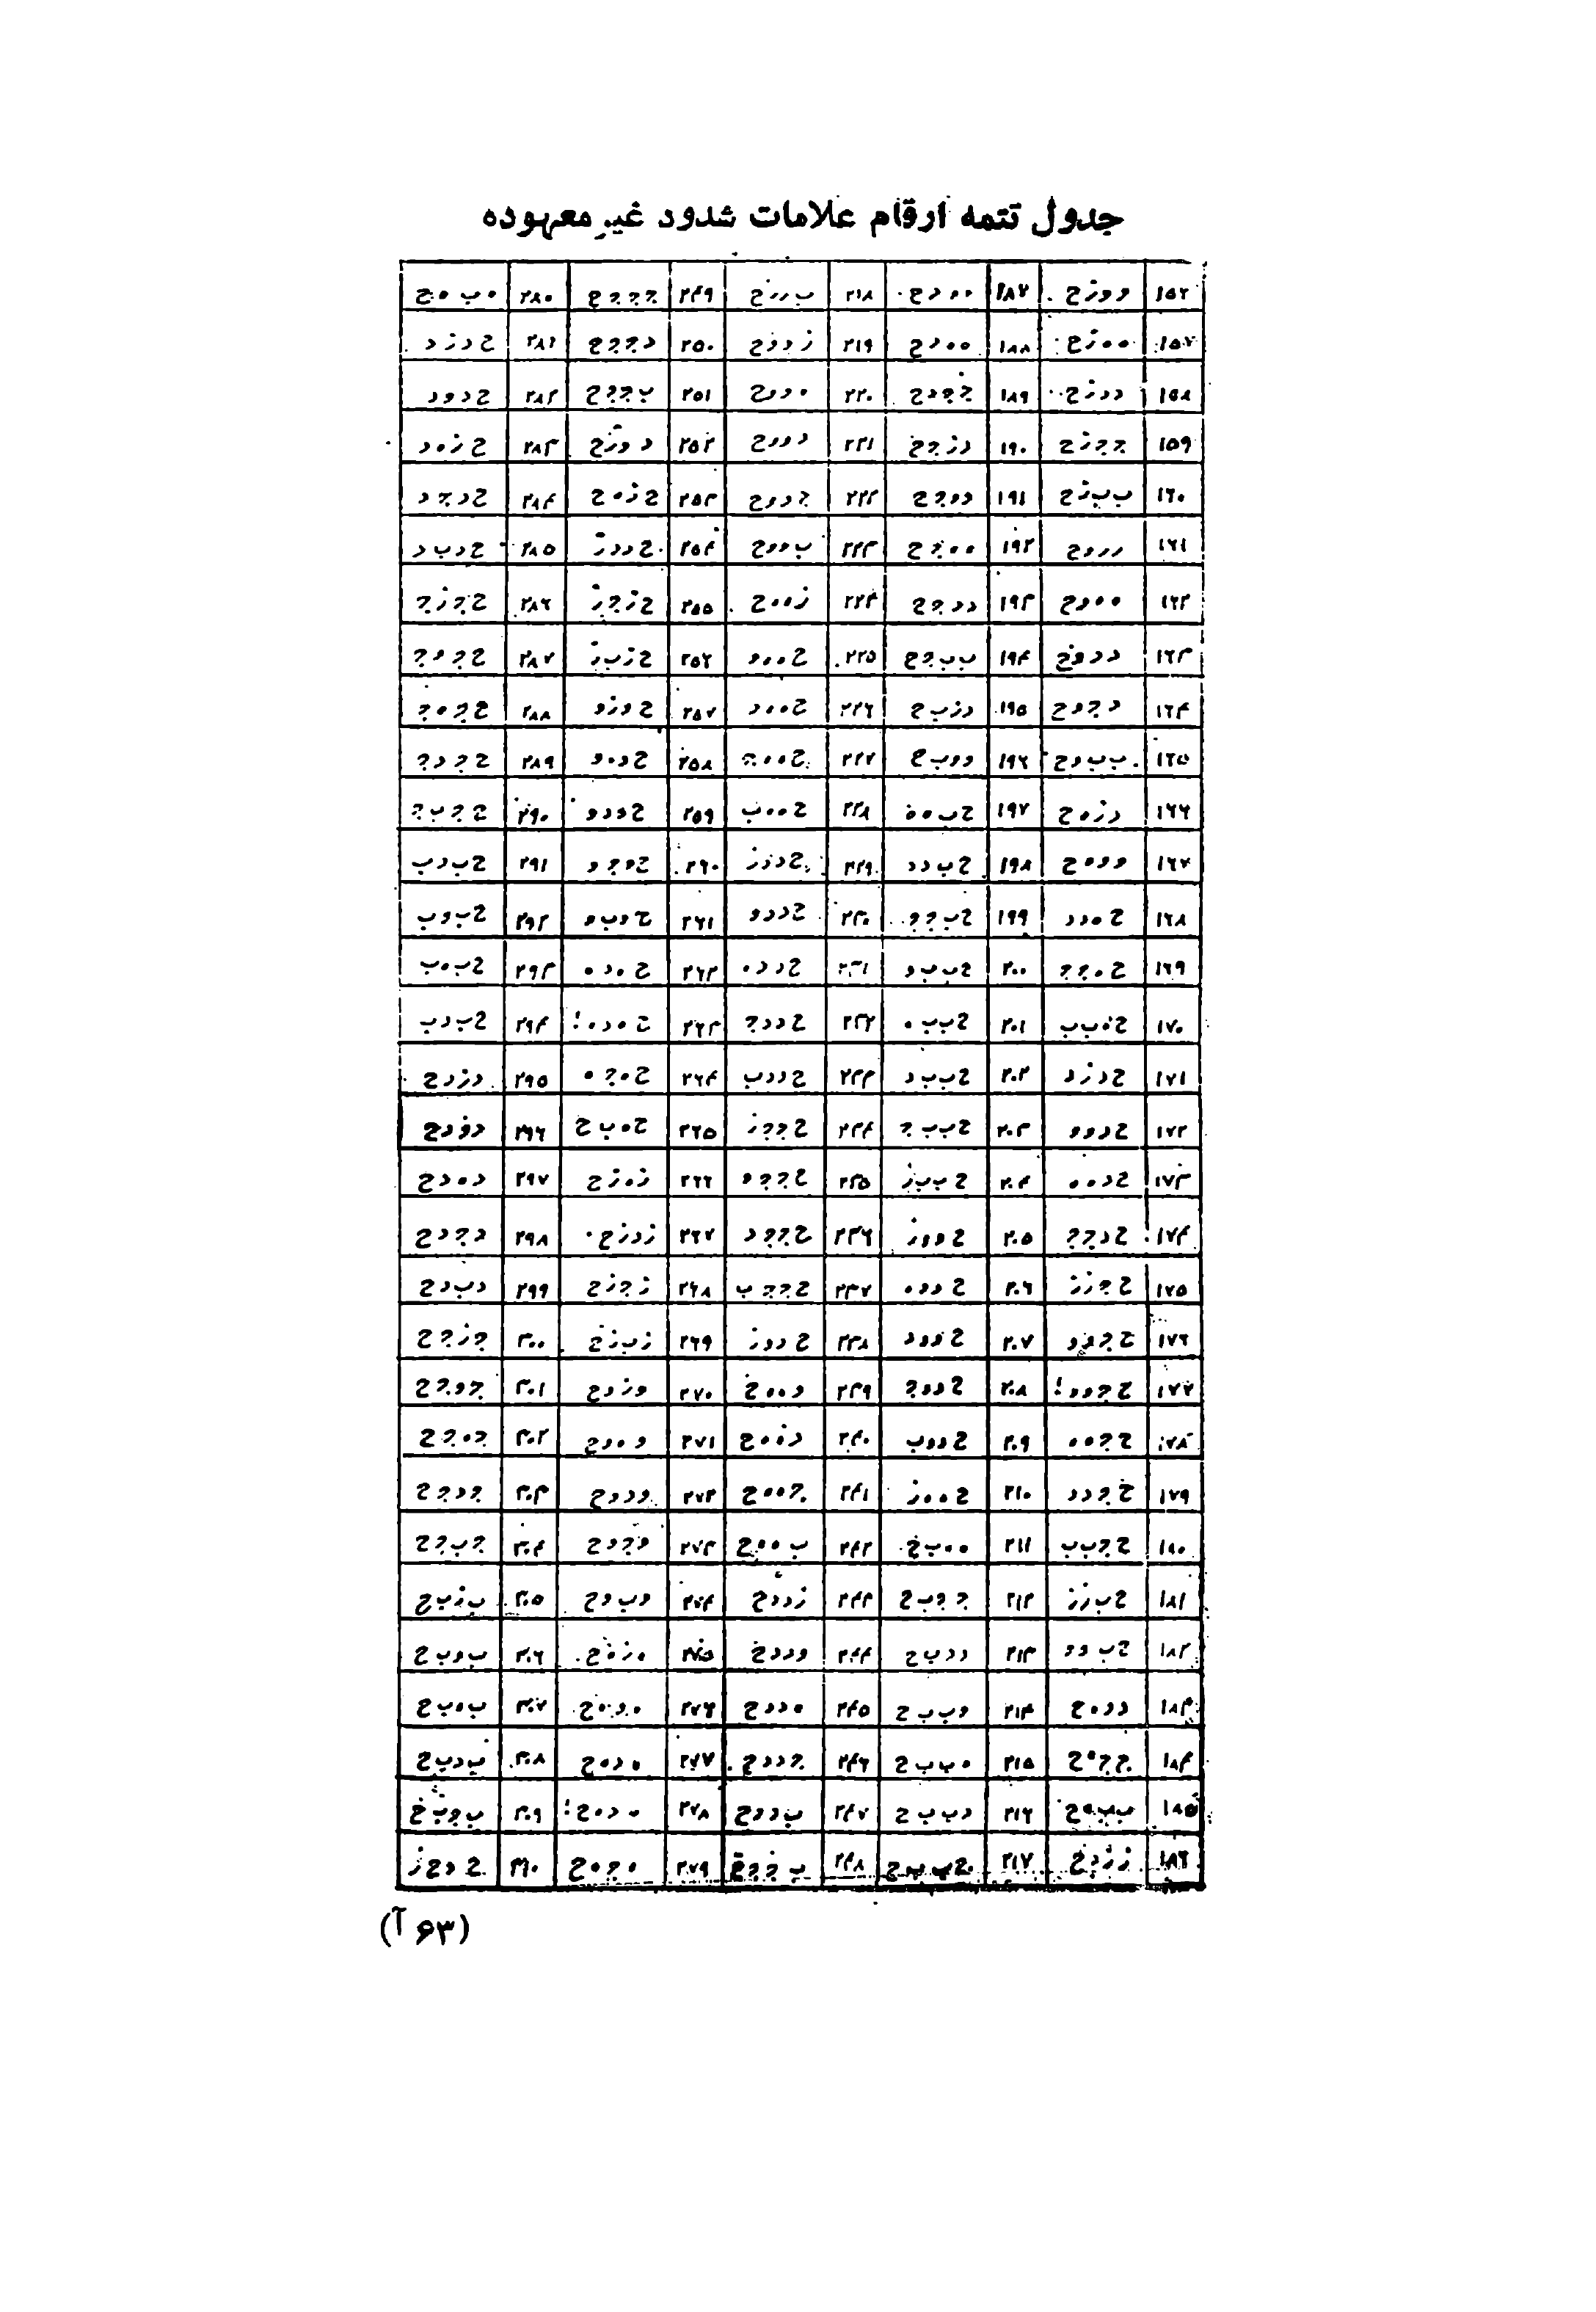 جدول تتمه ارقام علامات شدود غیر معهوده
۱۵۶ ووزح ۱۸۷ ههدح ۲۱۸ ۲۴۹ ججججح ۲۸۰ هبهج
۱۵۷ ههزح ۱۸۸ ههدح ۲۱۹ زدوح ۲۵۰ دججح ۲۸۱ حدزد
۱۵۸ ددزح ۱۸۹ ججدح ۲۲۰ هدوح ۲۵۱ بججح ۲۸۲ حدود
۱۵۹ ججزح ۱۹۰ دزجح ۲۲۱ ددوح ۲۵۲ دوزح ۲۸۳ حزهد
۱۶۰ ببزح ۱۹۱ ووجح ۲۲۲ جدوح ۲۵۳ حزهح ۲۸۴ حدجد
۱۶۱ ۱۹۲ ههجح ۲۲۳ بووح ۲۵۴ حددز ۲۸۵ حدبد
۱۶۲ ههوح ۱۹۳ ددجح ۲۲۴ زههح ۲۵۵ حزجز ۲۸۶ حجزج
۱۶۳ ددوح ۱۹۴ ببجح ۲۲۵ حههو ۲۵۶ حزبز ۲۸۷ حجوج
۱۶۴ دجوح ۱۹۵ دزبح ۲۲۶ حههد ۲۵۷ حوزو ۲۸۸ حجهج
۱۶۵ ببوح ۱۹۶ ووبح ۲۲۷ حههج ۲۵۸ حدهو ۲۸۹ حجدج
۱۶۶ دزهح ۱۹۷ حبهه ۲۲۸ حههب ۲۵۹ حودو ۲۹۰ حجبج
۱۶۷ ووهح ۱۹۸ حبدد ۲۲۹ حددز ۲۶۰ حوجو ۲۹۱ حبدب
۱۶۸ حهدد ۱۹۹ حبجج ۲۳۰ حددو ۲۶۱ حوبو ۲۹۲ حبوب
۱۶۹ حهجج ۲۰۰ حببو ۲۳۱ حدده ۲۶۲ حهده ۲۹۳ حبهب
۱۷۰ حهبب ۲۰۱ حببه ۲۳۲ حددج ۲۶۳ حهده! ۲۹۴ حبدب
۱۷۱ حدزد ۲۰۲ حببد ۲۳۳ حددب ۲۶۴ حهجه ۲۹۵ دزدح
۱۷۲ حدوو ۲۰۳ حببج ۲۳۴ حججز ۲۶۵ حهبح ۲۹۶ دودح
۱۷۳ حدهه ۲۰۴ حببز ۲۳۵ حججو ۲۶۶ زهزح ۲۹۷ دهدح
۱۷۴ حدجج ۲۰۵ حووز ۲۳۶ حججد ۲۶۷ زدزح ۲۹۸ دجدح
۱۷۵ حجزز ۲۰۶ حووه ۲۳۷ حججب ۲۶۸ زجزح ۲۹۹ دبدح
۱۷۶ حجوو ۲۰۷ حوود ۲۳۸ حدوز ۲۶۹ زبزح ۳۰۰ جزجح
۱۷۷ حجود! ۲۰۸ حووج ۲۳۹ وههح ۲۷۰ وزوح ۳۰۱ جوجح
۱۷۸ حجهه ۲۰۹ حووب ۲۴۰ دههح ۲۷۱ وهوح ۳۰۲ جهجح
۱۷۹ حجدد ۲۱۰ حههز ۲۴۱ جههح ۲۷۲ ودوح ۳۰۳ جدجح
۱۸۰ حجبب ۲۱۱ ههبح ۲۴۲ بههح ۲۷۳ وجوح ۳۰۴ جبجح
۱۸۱ حبزز ۲۱۲ ججبح ۲۴۳ زددح ۲۷۴ وبوح ۳۰۵ بزبح
۱۸۲ حبوو ۲۱۳ ددبح ۲۴۴ وددح ۲۷۵ هزهح ۳۰۶ بوبح
۱۸۳ ددهح ۲۱۴ وببح ۲۴۵ هددح ۲۷۶ هوهح ۳۰۷ بهبح
۱۸۴ ججهح ۲۱۵ هببح ۲۴۶ جددح ۲۷۷ هدهح ۳۰۸ بدبح
۱۸۵ ببهح ۲۱۶ دببح ۲۴۷ بددح ۲۷۸ هدهح! ۳۰۹ بجبح
۱۸۶ ززدح ۲۱۷ جببح ۲۴۸ ۲۷۹ هجهح ۳۱۰ حدحز
(۶۳ آ)